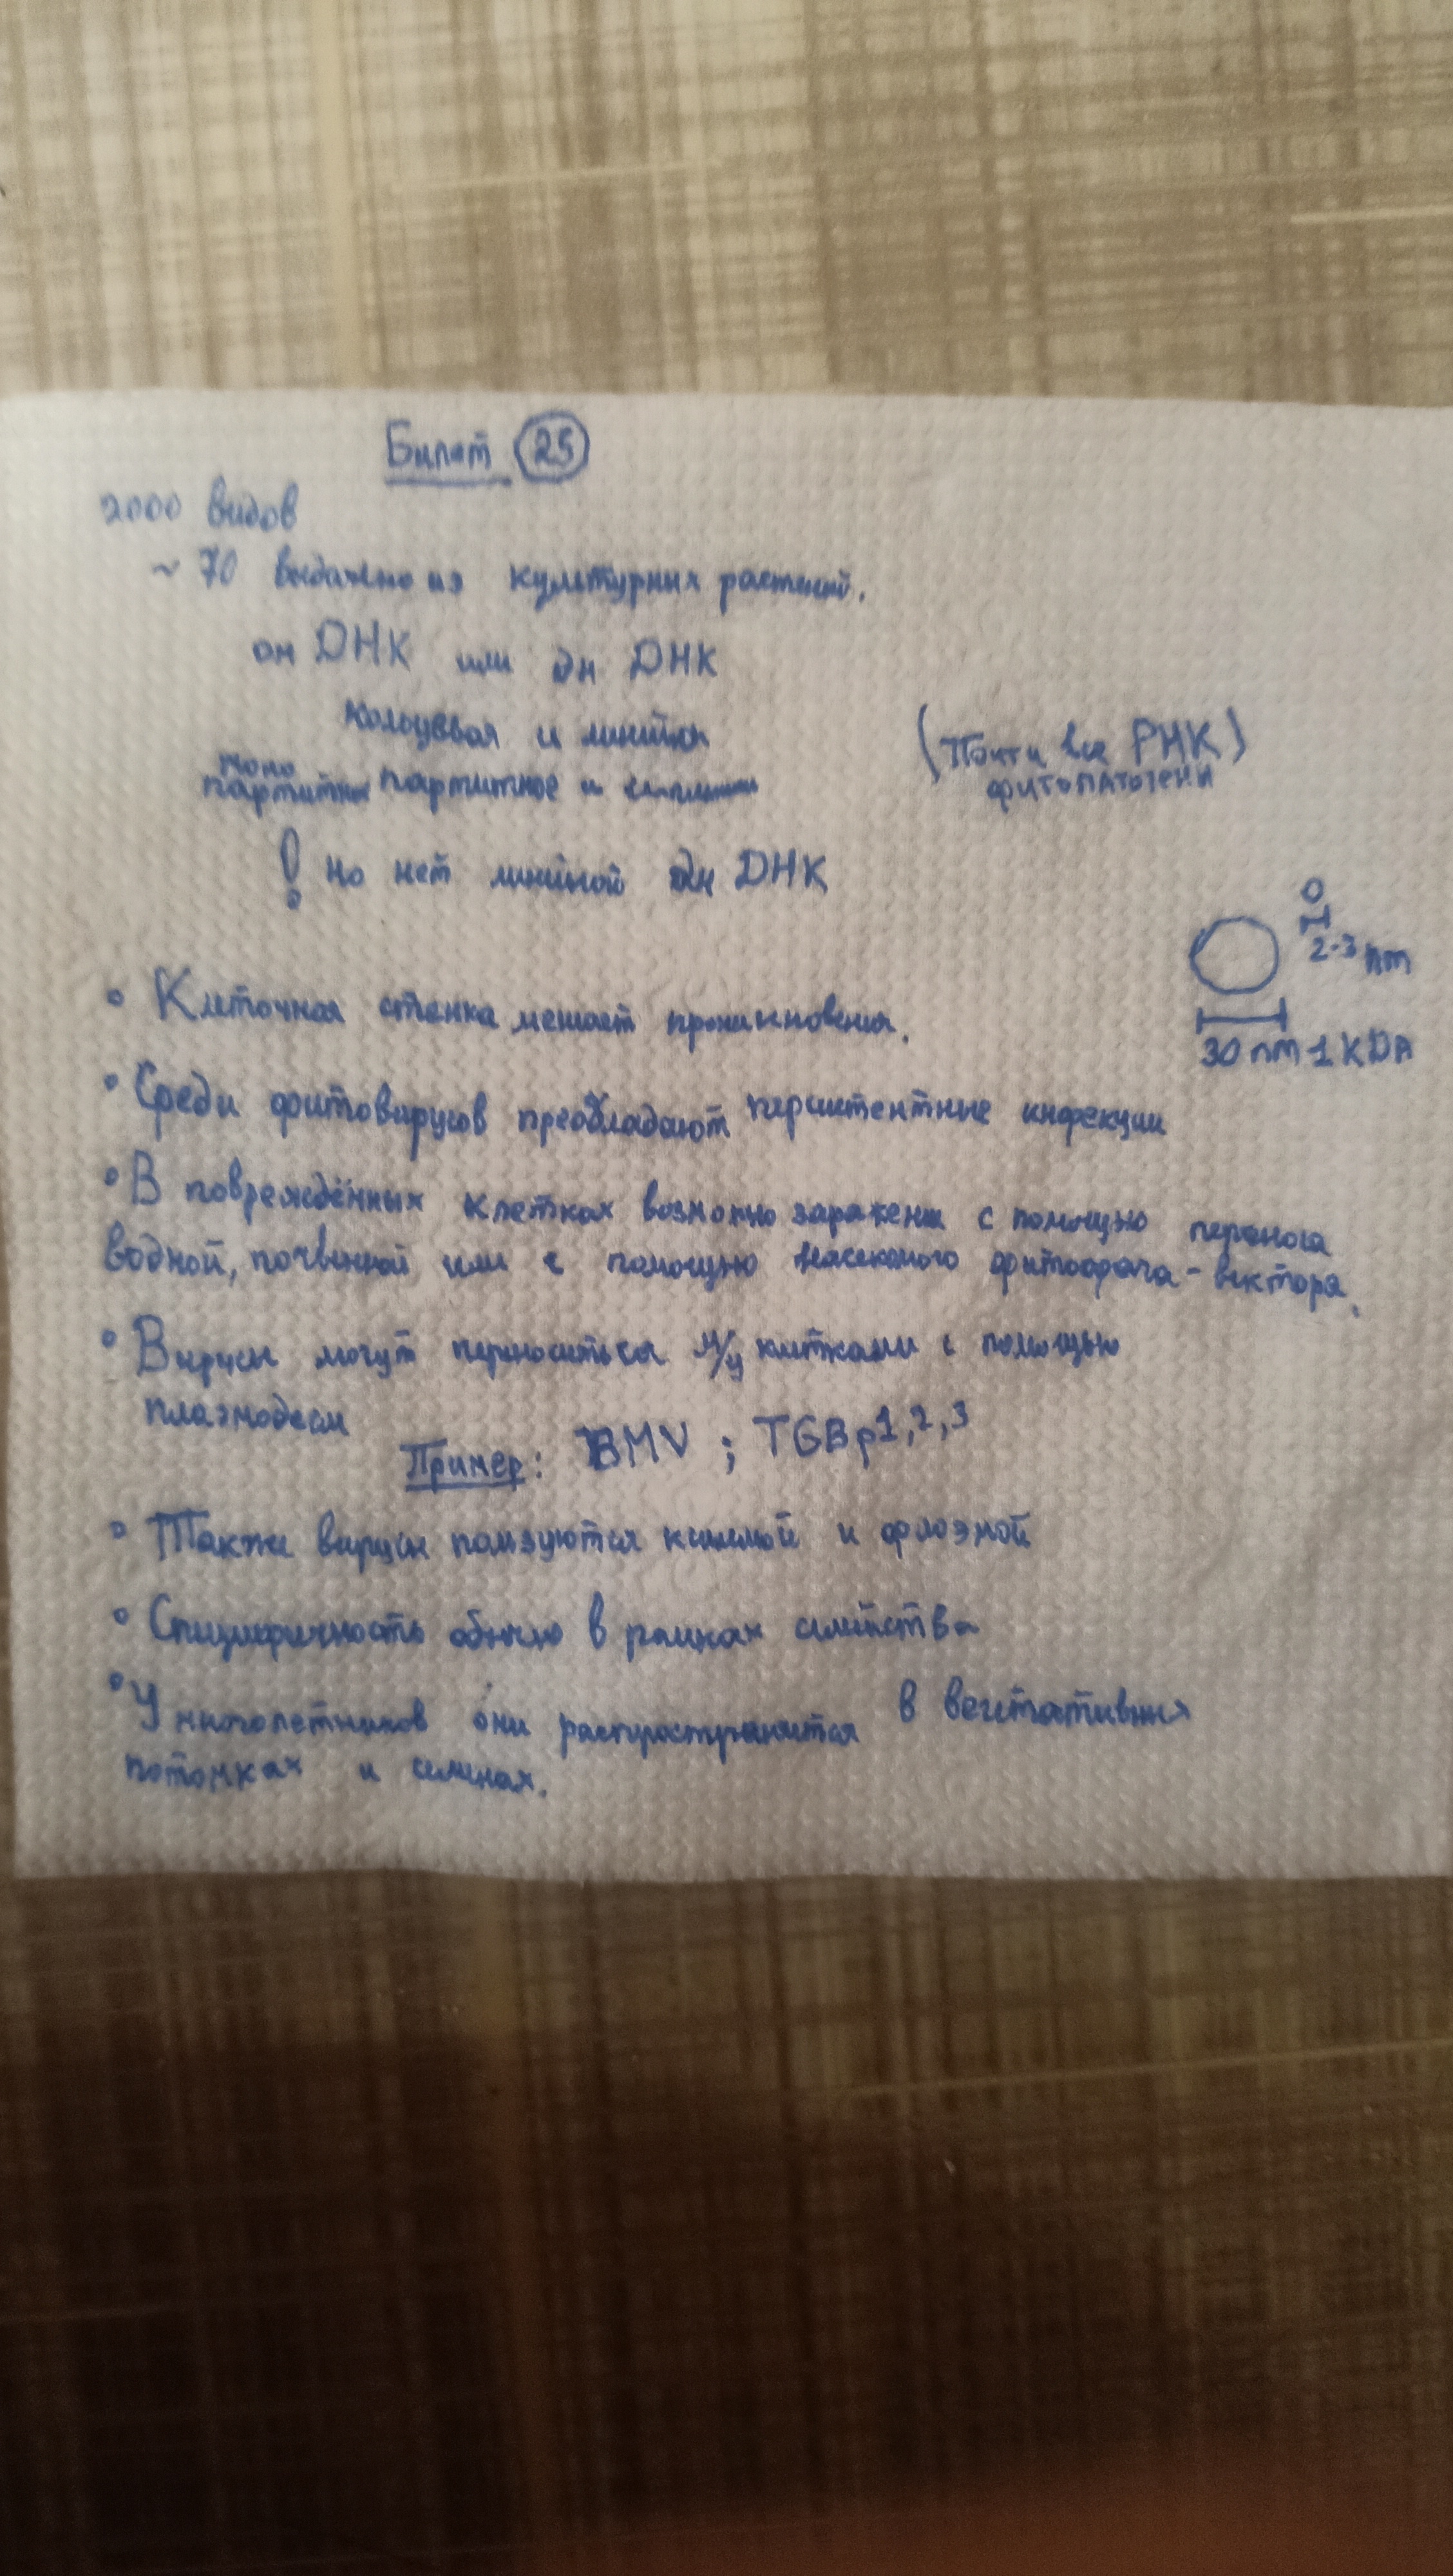 Билет 25
2000 видов
~ 70 выделено из культурных растений.
он ДНК или дн ДНК
кольцевая и линейная
(Почти все РНК)
фитопатогени
моно
партитное партитное и
! но нет линейной дн ДНК
2-3 nm
30 nm 1 KDA
• Клеточная стенка мешает проникновения.
• Среди фитовирусов преобладают персистентные инфекции
• В повреждённых клетках возможно заражение с помощью переноса
водной, почвенной или с помощью насекомого фитофага - вектора.
• Вирусы могут переноситься м/у клетками с помощью
плазмодесм
Пример: BMV ; TGBp1,2,3
• Также вирусы пользуются ксилемой и флоэмой
• Специфичность обычно в рамках семейства
• У многолетников они распространяется в вегетативных
потомках и семенах.